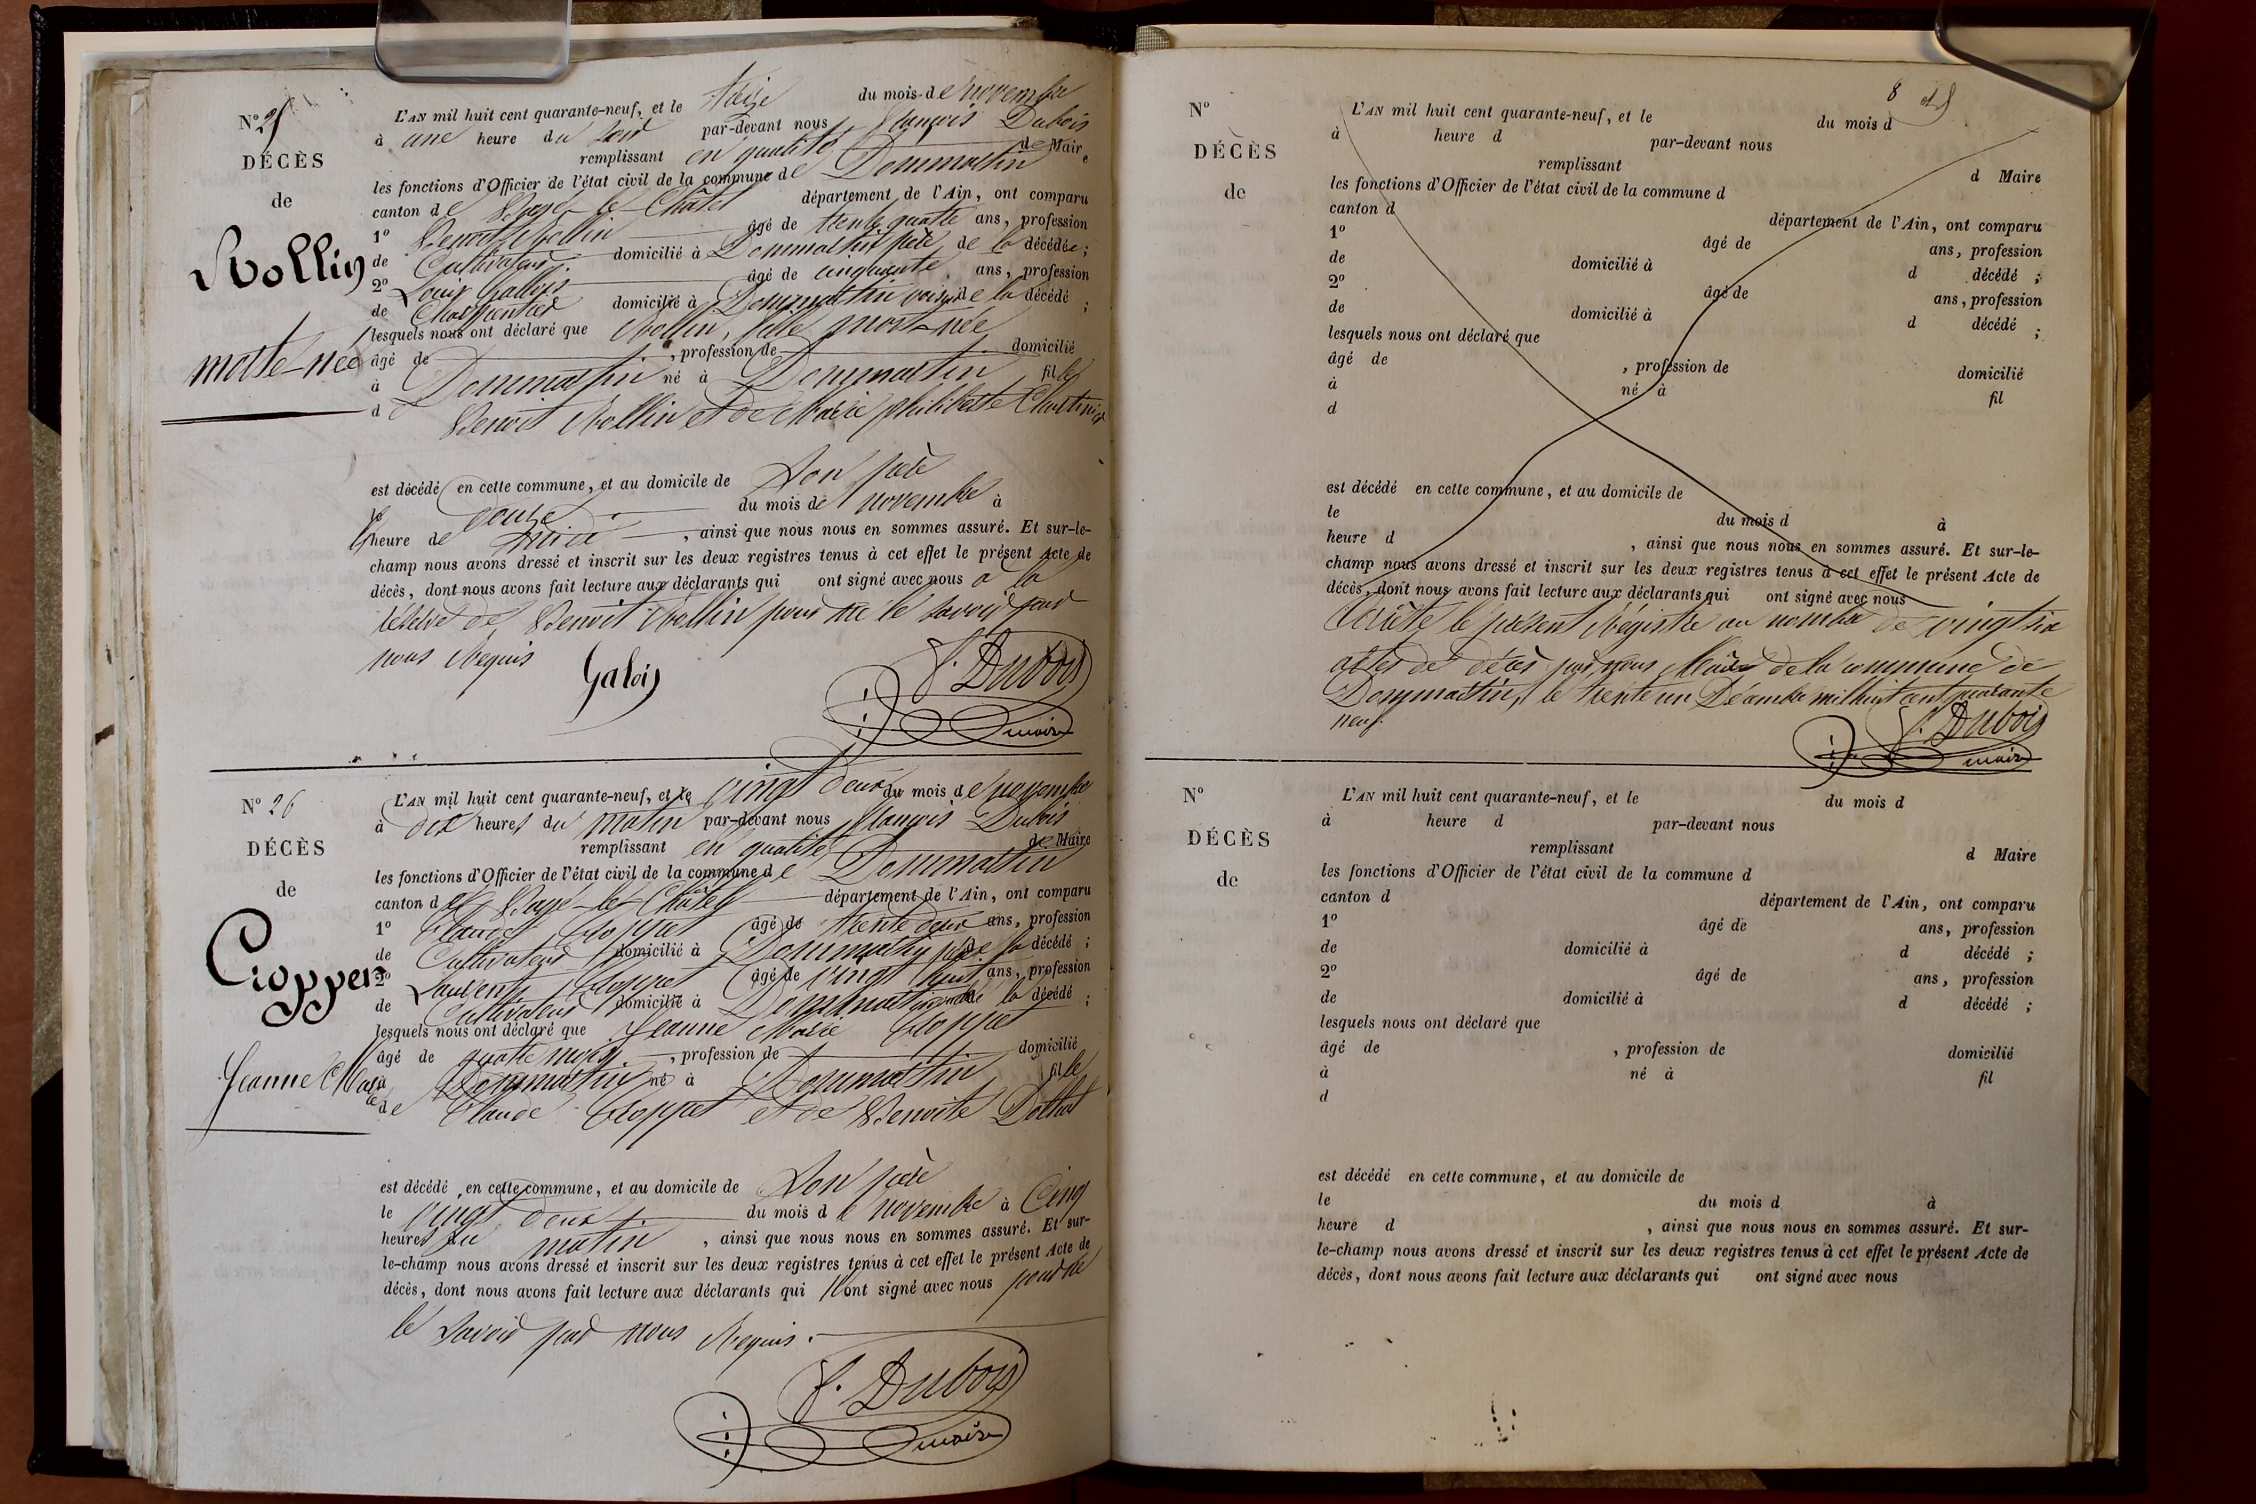 N° 25
DÉCÈS
de
Rollin
morte-née
L'AN mil huit cent quarante-neuf, et le treize du mois de novembre
à une heure du soir par-devant nous François Dubois
remplissant en qualité de Maire
les fonctions d'Officier de l'état civil de la commune de Dommartin
canton de Bagé-le-Châtel département de l'Ain, ont comparu
1° Benoit Rollin âgé de trente quatre ans, profession
de Cultivateur domicilié à Dommartin père de la décédée ;
2° Louis Gallois âgé de cinquante ans, profession
de Charpentier domicilié à Dommartin voisin de la décédé ;
lesquels nous ont déclaré que Rollin, fille mort-née
âgé de , profession de domicilié
à Dommartin né à Dommartin fille
de Benoit Rollin et de Marie philiberte
est décédé en cette commune, et au domicile de Son père
le douze du mois de novembre à
heure de midi , ainsi que nous nous en sommes assuré. Et sur-le-
champ nous avons dressé et inscrit sur les deux registres tenus à cet effet le présent Acte de
décès, dont nous avons fait lecture aux déclarants qui ont signé avec nous à la
réserve de Benoit Rollin pour ne le savoir par
nous Requis
Galois
F. Dubois
maire
N° 26
DÉCÈS
de
Croppet
Jeanne Marie
L'AN mil huit cent quarante-neuf, et le vingt deux du mois de novembre
à dix heures du matin par-devant nous François Dubois
remplissant en qualité de Maire
les fonctions d'Officier de l'état civil de la commune de Dommartin
canton de Bagé-le-Châtel département de l'Ain, ont comparu
1° Claude Croppet âgé de trente deux ans, profession
de Cultivateur domicilié à Dommartin père de la décédé ;
2° Laurent Croppet âgé de vingt huit ans, profession
de Cultivateur domicilié à Dommartin de la décédé ;
lesquels nous ont déclaré que Jeanne Marie Croppet
âgé de quatre mois , profession de domicilié
à Dommartin né à Dommartin fille
de Claude Croppet et de Benoite
est décédé en cette commune, et au domicile de Son père
le vingt deux du mois de novembre à Cinq
heures du matin , ainsi que nous nous en sommes assuré. Et sur-
le-champ nous avons dressé et inscrit sur les deux registres tenus à cet effet le présent Acte de
décès, dont nous avons fait lecture aux déclarants qui n'ont signé avec nous pour ne
le Savoir par nous Requis.
F. Dubois
maire
8
N°
DÉCÈS
de
L'AN mil huit cent quarante-neuf, et le du mois d
à heure d par-devant nous
remplissant d Maire
les fonctions d'Officier de l'état civil de la commune d
canton d département de l'Ain, ont comparu
1° âgé de ans, profession
de domicilié à d décédé ;
2° âgé de ans, profession
de domicilié à d décédé ;
lesquels nous ont déclaré que
âgé de , profession de domicilié
à né à fil
d
est décédé en cette commune, et au domicile de
le du mois d à
heure d , ainsi que nous nous en sommes assuré. Et sur-le-
champ nous avons dressé et inscrit sur les deux registres tenus à cet effet le présent Acte de
décès, dont nous avons fait lecture aux déclarants qui ont signé avec nous
Arrêté le présent Régistre au nombre de vingt six
actes de décès par nous Maire de la commune de
Dommartin, le trente un Décembre mil huit cent quarante
neuf.
F. Dubois
maire
N°
DÉCÈS
de
L'AN mil huit cent quarante-neuf, et le du mois d
à heure d par-devant nous
remplissant d Maire
les fonctions d'Officier de l'état civil de la commune d
canton d département de l'Ain, ont comparu
1° âgé de ans, profession
de domicilié à d décédé ;
2° âgé de ans, profession
de domicilié à d décédé ;
lesquels nous ont déclaré que
âgé de , profession de domicilié
à né à fil
d
est décédé en cette commune, et au domicile de
le du mois d à
heure d , ainsi que nous nous en sommes assuré. Et sur-
le-champ nous avons dressé et inscrit sur les deux registres tenus à cet effet le présent Acte de
décès, dont nous avons fait lecture aux déclarants qui ont signé avec nous